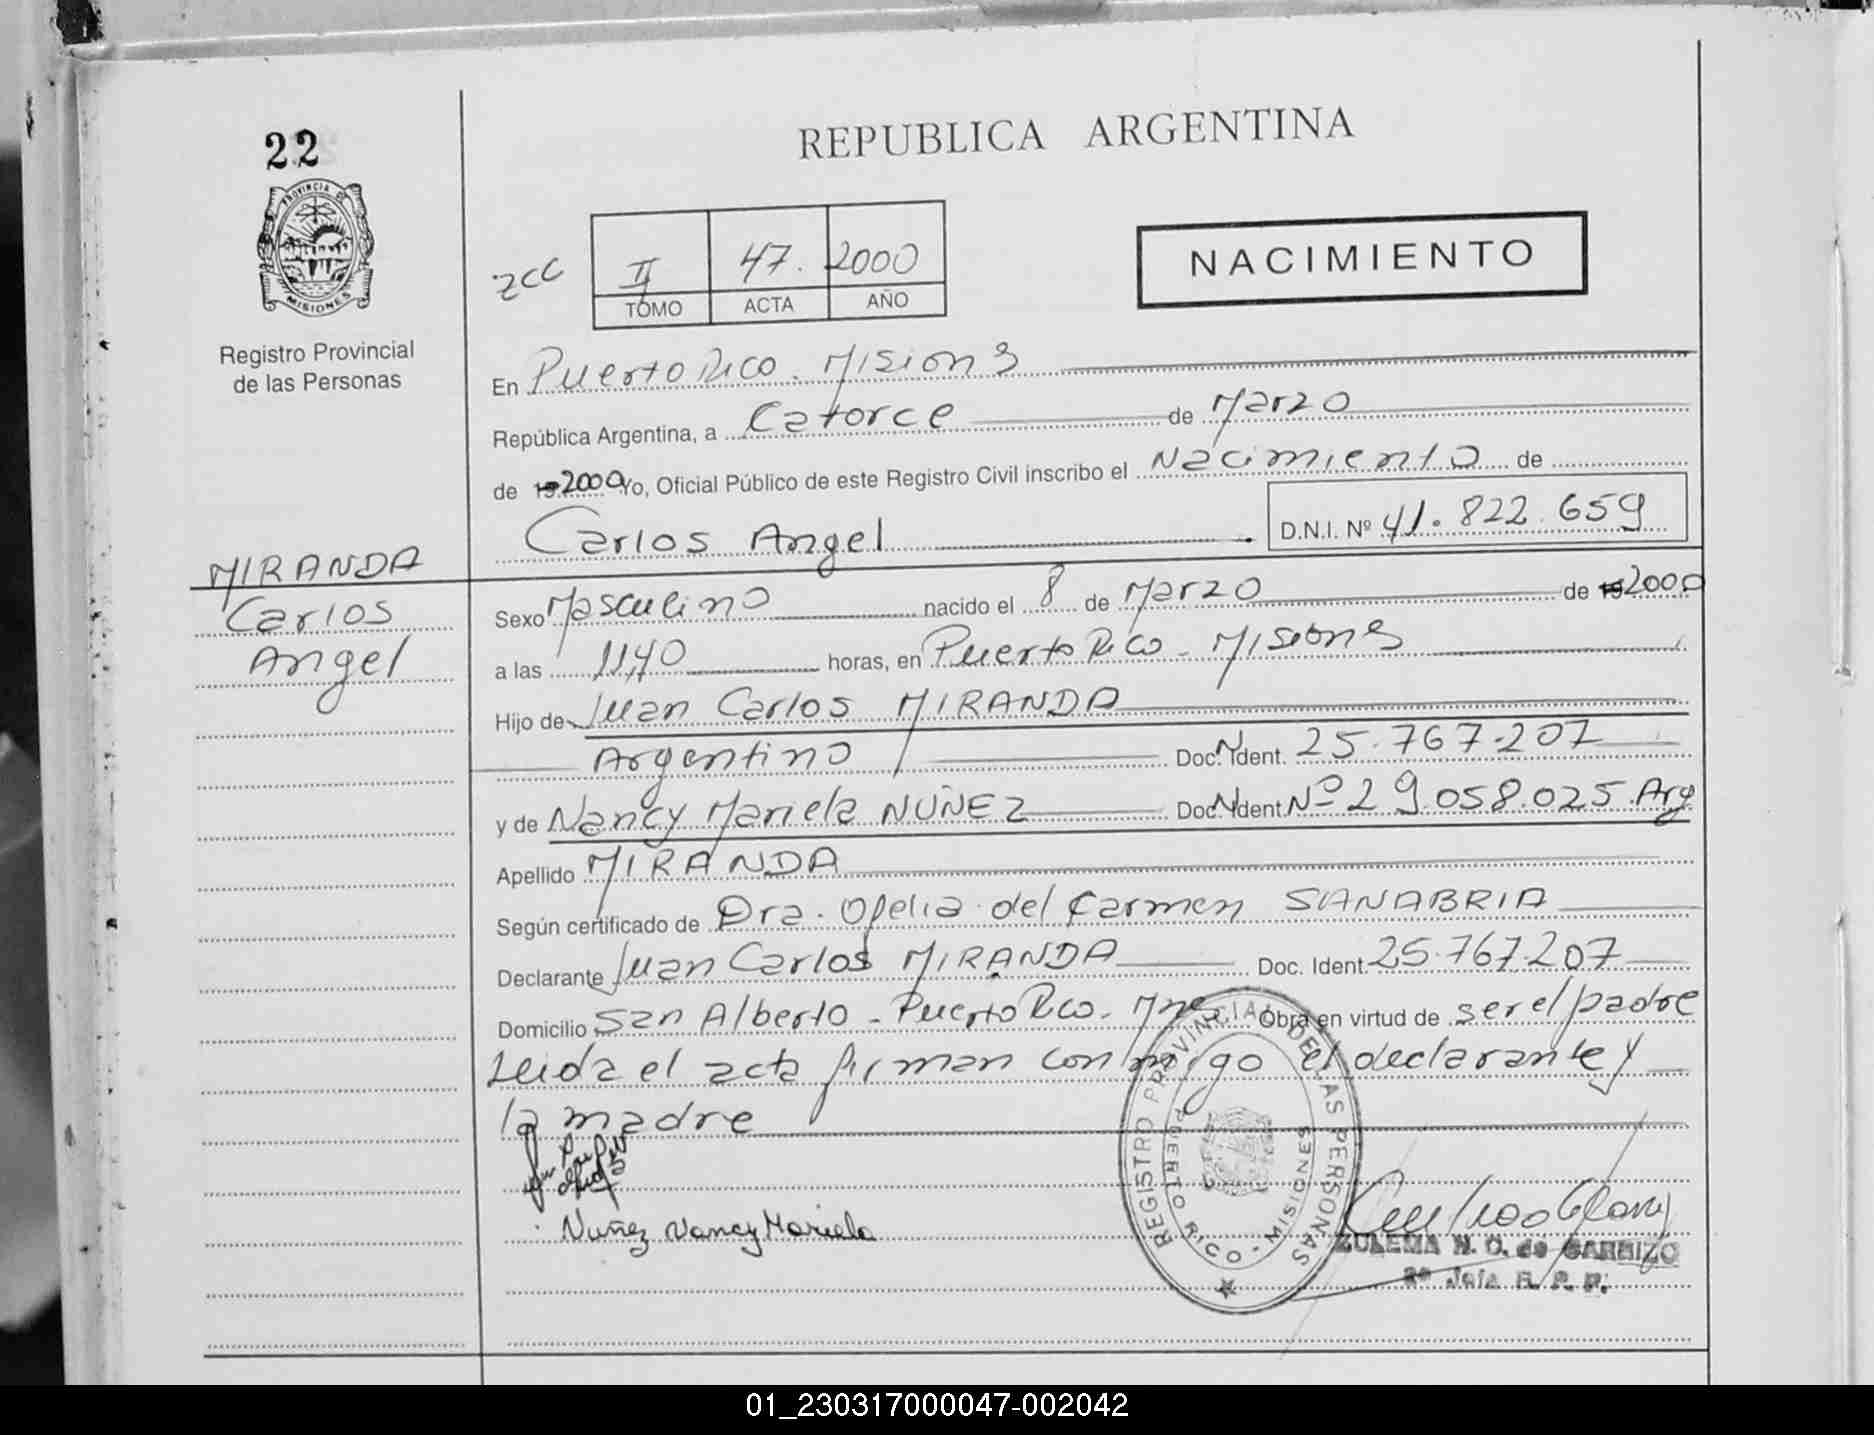 22
REPUBLICA ARGENTINA
PROVINCIA DE
MISIONES
Registro Provincial
de las Personas
zcc
II 47. 2000
TOMO ACTA AÑO
NACIMIENTO
En Puerto Rico. Misiones
República Argentina, a Catorce de Marzo
de 19 2000 Yo, Oficial Público de este Registro Civil inscribo el Nacimiento de
Carlos Angel D.N.I. Nº 41.822.659
MIRANDA
Carlos
Angel
Sexo Masculino nacido el 8 de Marzo de 19 2000
a las 11,40 horas, en Puerto Rico - Misiones
Hijo de Juan Carlos MIRANDA
Argentino Doc. N Ident. 25.767.207
y de Nancy Mariela NUÑEZ Doc. N Ident. Nº 29.058.025 Arg
Apellido MIRANDA
Según certificado de Dra. Ofelia del Carmen SANABRIA
Declarante Juan Carlos MIRANDA Doc. Ident. 25.767.207
Domicilio San Alberto - Puerto Rico. Mnes Obra en virtud de ser el padre
Leida el acta firman conmigo el declarante y
la madre
Nuñez Nancy Mariela
REGISTRO PROVINCIAL DE LAS PERSONAS
PUERTO RICO - MISIONES
ZULEMA N. O. de GARRIZO
2ª Jefa R. P. P.
01_230317000047-002042